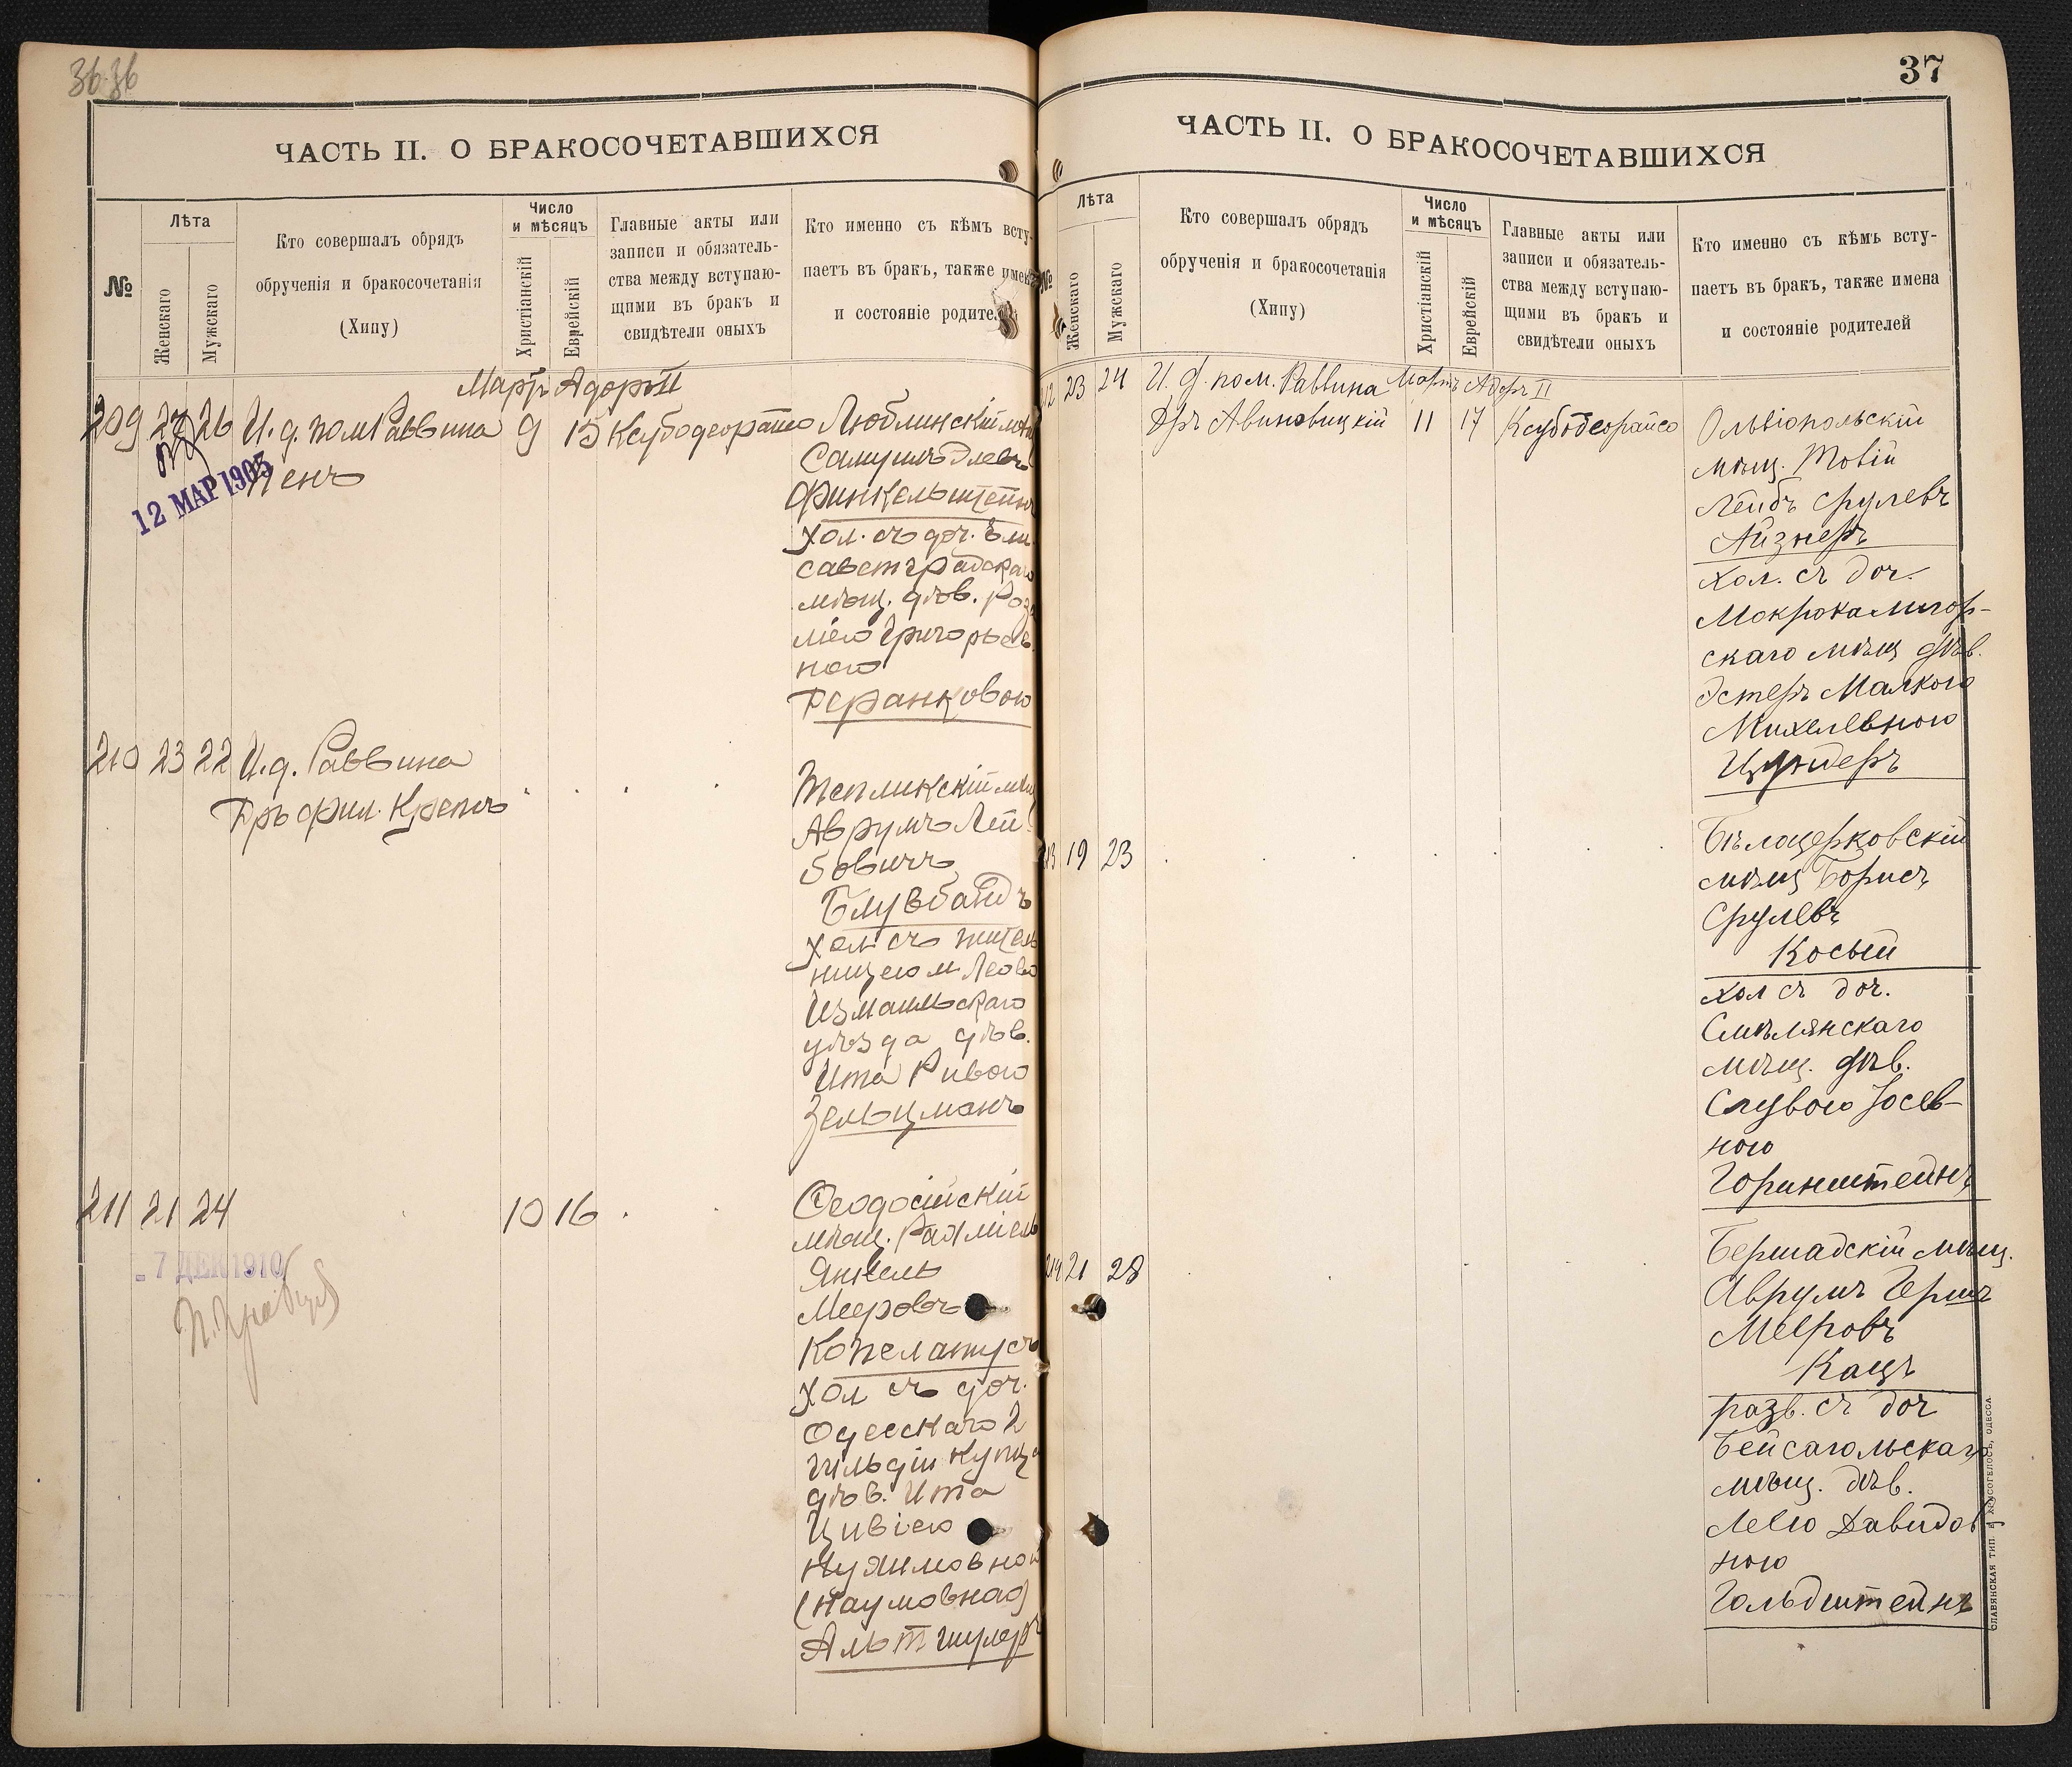 36 36
ЧАСТЬ II. О БРАКОСОЧЕТАВШИХСЯ
№
Лѣта
Женскаго
Мужскаго
Кто совершалъ обрядъ
обрученія и бракосочетанія
(Хипу)
Число
и мѣсяцъ
Христіанскій
Еврейскій
Главные акты или
записи и обязатель-
ства между вступаю-
щими въ бракъ и
свидѣтели оныхъ
Кто именно съ кѣмъ всту-
паетъ въ бракъ, также имена
и состояніе родител
Мартъ Адоръ II
209 27 26 И.д. пом Раввина 9 15 Ксубодеорайсо Люблинскій
Пенъ
12 МАР 1905
Самуилъ
Финкельштейнъ
хол. съ доч. Ели
саветградскаго
мѣщ. дѣв. Роза
ліею Григорьев
ною
Деранковою
210 23 22 И.д. Раввина
Дръ фил. Крепсъ
Тепликскій
Аврумъ Лей
бовичъ
Блувбандъ
хол. съ
ницею м. Леово
Измаильскаго
уѣзда дѣв.
Ита Ривою
Зельцманъ
211 21 24 10 16
7 ДЕК 1910
Ѳеодосійскій
мѣщ. Рахміель
Янкель
Мееровъ
Копелатусъ
хол съ доч.
Одесскаго 2
гильдіи купца
дѣв. Ита
Цивіею
Нухимовной
(Наумовною)
Альтшулеръ
37
ЧАСТЬ II. О БРАКОСОЧЕТАВШИХСЯ
№
Лѣта
Женскаго
Мужскаго
Кто совершалъ обрядъ
обрученія и бракосочетанія
(Хипу)
Число
и мѣсяцъ
Христіанскій
Еврейскій
Главные акты или
записи и обязатель-
ства между вступаю-
щими въ бракъ и
свидѣтели оныхъ
Кто именно съ кѣмъ всту-
паетъ въ бракъ, также имена
и состояніе родителей
212 23 24 И. д. пом. Раввина Мартъ Адоръ II
Дръ Авиновицкій 11 17 Ксубодеорайсо Ольвіопольскій
мѣщ. Товій
Лейбъ Срулевъ
Айзнеръ
хол. съ доч.
Мокрокалигор-
скаго мѣщ дѣв.
Эстеръ Малкою
Михелевною
Цундеръ
213 19 23
Бѣлоцерковскій
мѣщ Борисъ
Срулевъ
Косый
хол съ доч.
Смѣлянскаго
мѣщ. дѣв.
Слувою Іосев-
ною
Горинштейнъ
214 21 28
Бершадскій мѣщ.
Аврумъ Гершъ
Мееровъ
Кацъ
разв. съ доч
Бейсагольскаго
мѣщ. дѣв.
Леею Давидов
ною
Гольдштейнъ
СЛАВЯНСКАЯ ТИП. Е ХРИСОГЕЛОСЪ, ОДЕССА